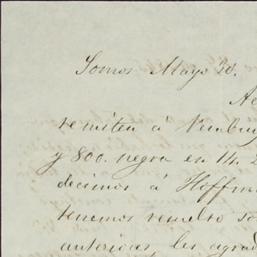 Somos Mayo 30.
remiten á
y 800. negra en 14.
decimos á Hoffm
tenemos resuelto so
anterior, les agrad